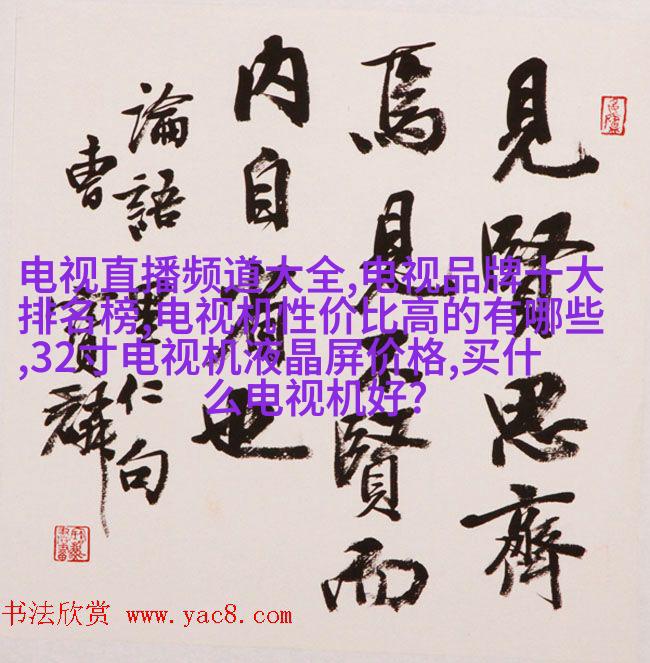 見賢思齊
焉見不賢而
内自省也
論語里仁句
曹寶麟
电视直播频道大全,电视品牌十大
排名榜,电视机性价比高的有哪些
,32寸电视机液晶屏价格,买什
么电视机好?
书法欣赏 www.yac8.com